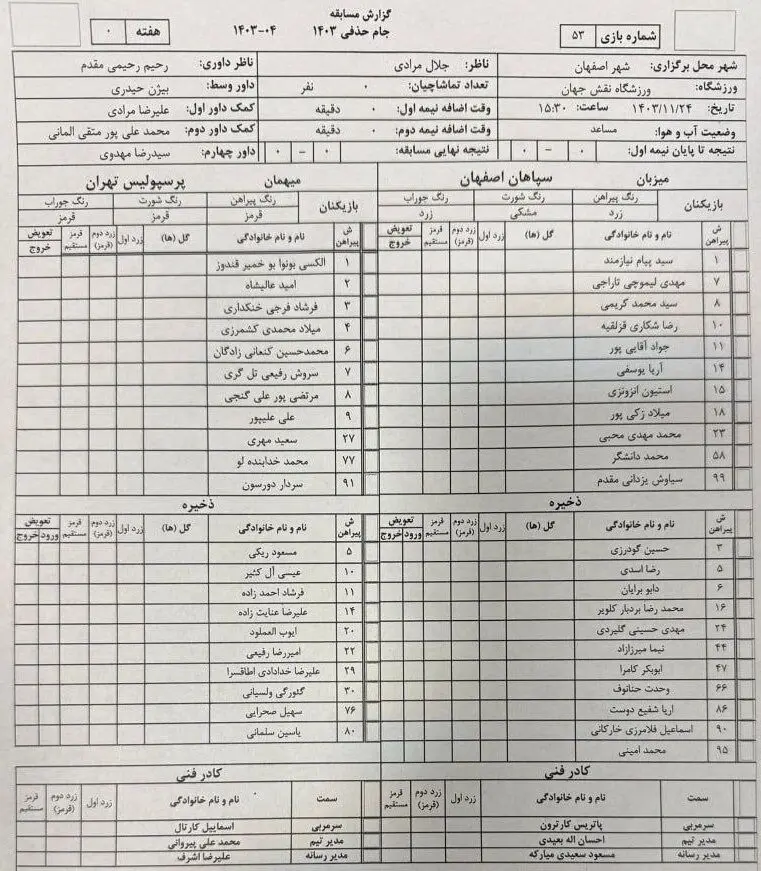 گزارش مسابقه
جام حذفی ۱۴۰۳ ۰۴-۱۴۰۳
شماره بازی ۵۳
هفته ۰
شهر محل برگزاری: شهر اصفهان ناظر: جلال مرادی ناظر داوری: رحیم رحیمی مقدم
ورزشگاه: ورزشگاه نقش جهان تعداد تماشاچیان: ۰ نفر داور وسط: بیژن حیدری
تاریخ: ۱۴۰۳/۱۱/۲۴ ساعت: ۱۵:۳۰ وقت اضافه نیمه اول: ۰ دقیقه کمک داور اول: علیرضا مرادی
وضعیت آب و هوا: مساعد وقت اضافه نیمه دوم: ۰ دقیقه کمک داور دوم: محمد علی پور متقی المانی
نتیجه تا پایان نیمه اول: ۰ – ۰ نتیجه نهایی مسابقه: ۰ – ۰ داور چهارم: سیدرضا مهدوی
میزبان سپاهان اصفهان
بازیکنان رنگ پیراهن رنگ شورت رنگ جوراب
زرد مشکی زرد
ش پیراهن نام و نام خانوادگی گل (ها) زرد اول زرد دوم (قرمز) قرمز مستقیم تعویض خروج
۱ سید پیام نیازمند
۷ مهدی لیموچی تاراجی
۸ سید محمد کریمی
۱۰ رضا شکاری قزلقیه
۱۱ جواد آقایی پور
۱۴ آریا یوسفی
۱۵ استیون انزونزی
۱۸ میلاد زکی پور
۲۳ محمد مهدی محبی
۵۸ محمد دانشگر
۹۹ سیاوش یزدانی مقدم
ذخیره
ش پیراهن نام و نام خانوادگی گل (ها) زرد اول زرد دوم (قرمز) قرمز مستقیم تعویض ورود خروج
۳ حسین گودرزی
۵ رضا اسدی
۶ دابو برایان
۱۶ محمد رضا بردبار کلویر
۲۴ مهدی حسینی گلیردی
۴۴ نیما میرزازاد
۴۷ ابوبکر کامرا
۶۶ وحدت حنانوف
۸۶ اریا شفیع دوست
۹۰ اسماعیل فلامرزی خارکانی
۹۵ محمد امینی
کادر فنی
سمت نام و نام خانوادگی زرد اول زرد دوم (قرمز) قرمز مستقیم
سرمربی پاتریس کارترون
مدیر تیم احسان اله بعیدی
مدیر رسانه مسعود سعیدی مبارکه
میهمان پرسپولیس تهران
بازیکنان رنگ پیراهن رنگ شورت رنگ جوراب
قرمز قرمز قرمز
ش پیراهن نام و نام خانوادگی گل (ها) زرد اول زرد دوم (قرمز) قرمز مستقیم تعویض خروج
۱ الکسی بونوا بو خمیر قندوز
۲ امید عالیشاه
۳ فرشاد فرجی خنکداری
۴ میلاد محمدی کشمرزی
۶ محمدحسین کنعانی زادگان
۷ سروش رفیعی تل گری
۸ مرتضی پور علی گنجی
۹ علی علیپور
۲۷ سعید مهری
۷۷ محمد خدابنده لو
۹۱ سردار دورسون
ذخیره
ش پیراهن نام و نام خانوادگی گل (ها) زرد اول زرد دوم (قرمز) قرمز مستقیم تعویض ورود خروج
۵ مسعود ریکی
۱۰ عیسی آل کثیر
۱۱ فرشاد احمد زاده
۱۴ علیرضا عنایت زاده
۲۰ ایوب العملود
۲۲ امیررضا رفیعی
۲۹ علیرضا خدادادی اطاقسرا
۳۰ گئورگی ولسیانی
۷۶ سهیل صحرایی
۸۰ یاسین سلمانی
کادر فنی
سمت نام و نام خانوادگی زرد اول زرد دوم (قرمز) قرمز مستقیم
سرمربی اسماییل کارتال
مدیر تیم محمد علی پیروانی
مدیر رسانه علیرضا اشرف